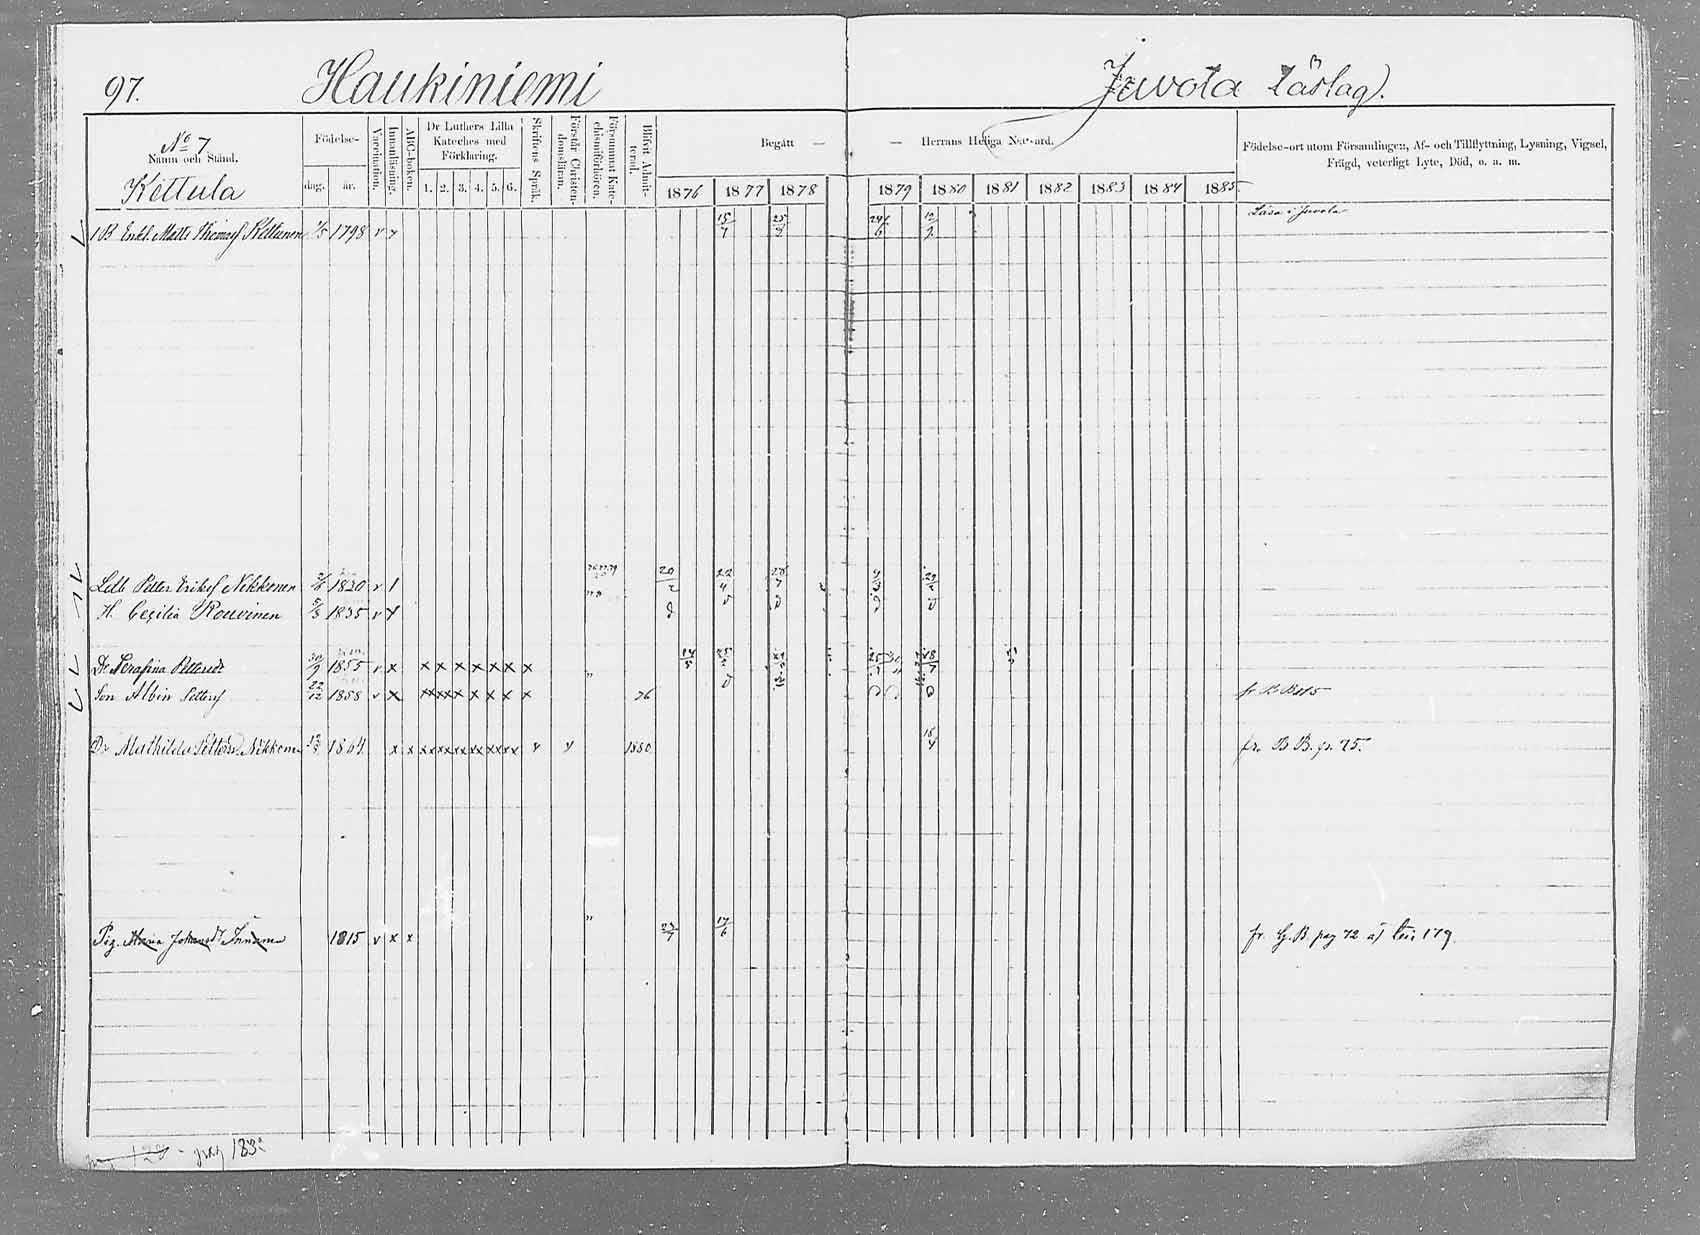 97. Haukiniemi Juvola läslag.
No 7
Namn och Stånd.
Kettula
Födelse-
dag. år.
Vaccination.
Innanläsning.
ABC-boken.
Dr Luthers Lilla Kateches med Förklaring.
1. 2. 3. 4. 5. 6.
Skriftens Språk.
Förstår Christendomsläran.
Försummat Katechismiförhören.
Blifvit Admitterad.
Begått — — Herrans Heliga Nattvard.
1876 1877 1878 1879 1880 1881 1882 1883 1884 1885
Födelse-ort utom Församlingen, Af- och Tillflyttning, Lysning, Vigsel, Frägd, veterligt Lyte, Död, o. a. m.
Läsa i Juvola
1 B Enkl. Matts Thomasf Kettunen 1798 v 15/7 12/9
Petter Eriksf Nikkonen 1820 v
H. Cecilia Rouvinen 5/3 1835 v
Dr Serafina Pettersdr 30/9 1855 v x x x x x x x x x
Son Albin Pettersf 22/12 1858 v x xx xx x x x x x x 76 fr B B 815
Dr Mathilda Pettersdr Nikkonen 1864 x x xx xx xx xx xx xx 1880 18/4 fr. B B. p. 75.
Pig. Maria Johansdr Innanen 1815 v x x 17/6 fr. G. B. pag 72 af ten 179
pag 128 - pag 183